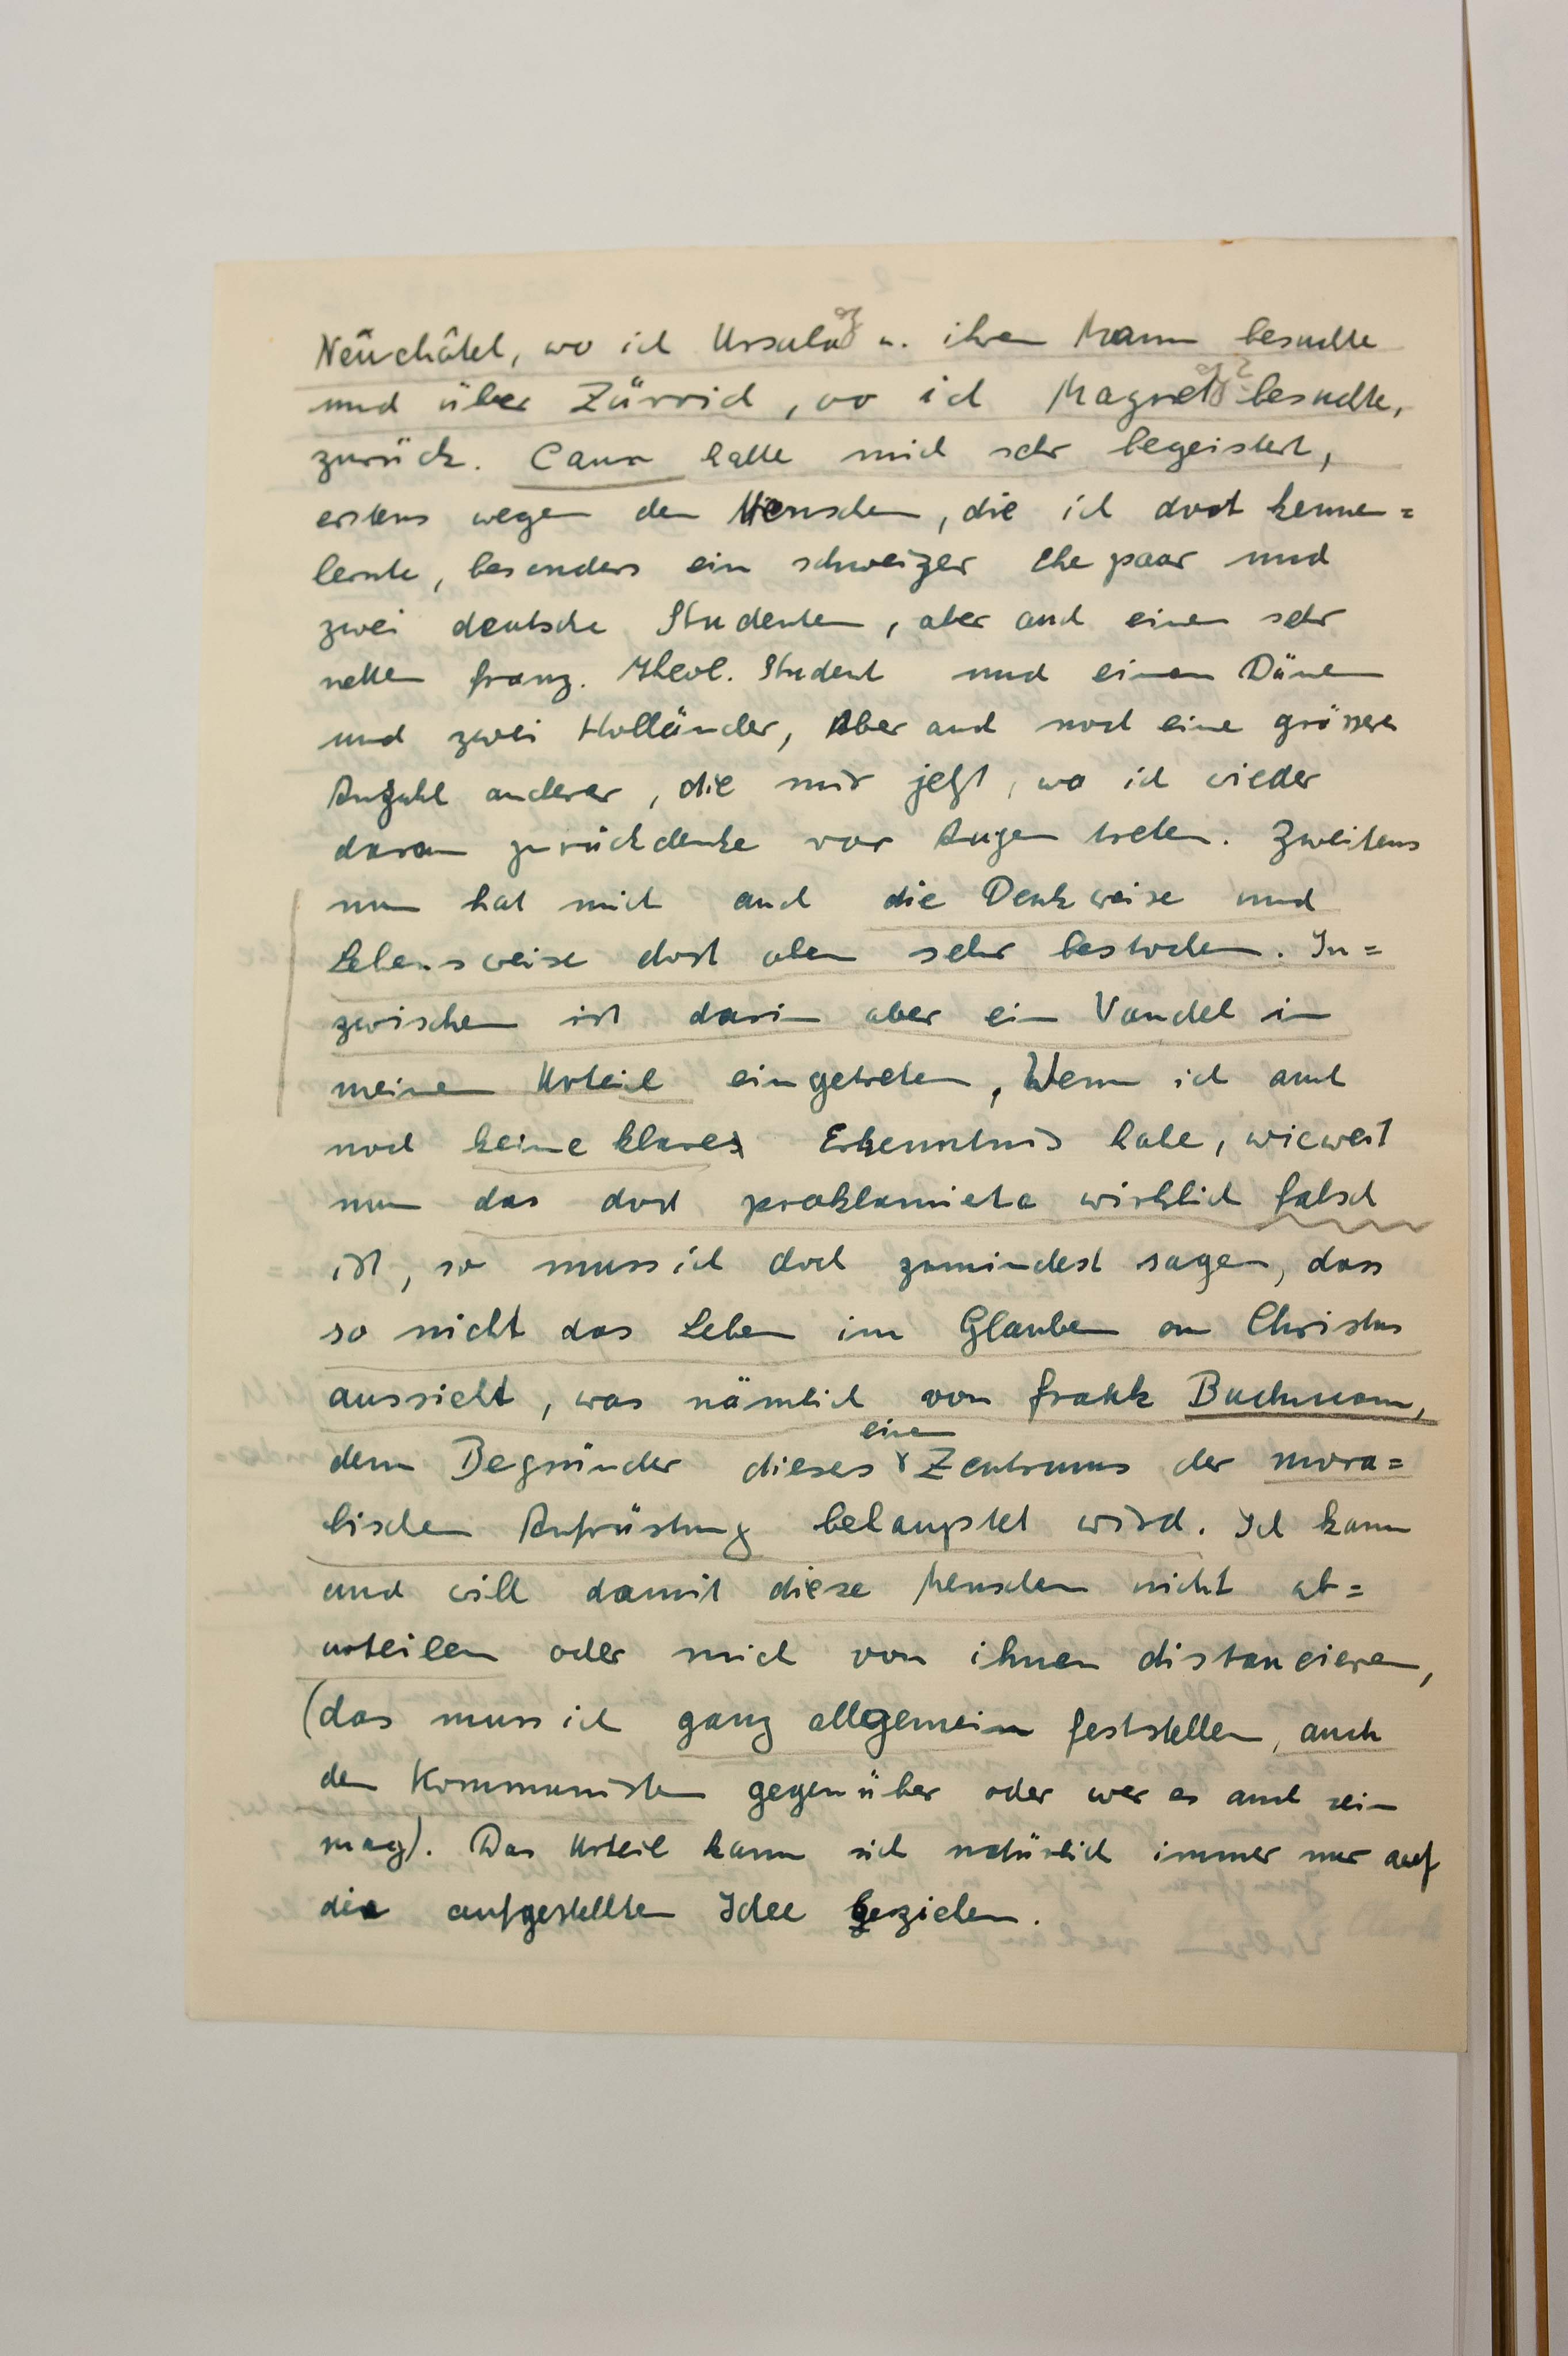 Neuchâtel, wo ich Ursula u. ihren Mann besuchte
und über Zürrich, wo ich Magnet besuchte,
zurück. Caux hatte mich sehr begeistert,
erstens wegen den Menschen, die ich dort kennen=
lernte, besonders ein schweizer Ehepaar und
zwei deutsche Studenten, aber auch einen sehr
netten franz. Theol. Student und einen Dänen
und zwei Holländer, Aber auch noch eine grössere
Anzahl anderer, die mir jetzt, wo ich wieder
daran zurückdenke vor Augen treten. Zweitens
nun hat mich auch die Denkweise und
Lebensweise dort oben sehr bestochen. In=
zwischen ist darin aber ein Wandel in
meinem Urteil eingetreten, Wenn ich auch
noch keine klares Erkenntnis habe, wieweit
nun das dort proklamierte wirklich falsch
ist, so muss ich doch zumindest sagen, dass
so nicht das Leben im Glauben an Christus
aussieht, was nämlich von Frank Buchmann,
dem Begründer dieses Zentrums der mora=
einen
lischen Aufrüstung behauptet wird. Ich kann
und will damit diese Menschen nicht ab=
urteilen oder mich von ihnen distancieren,
(das muss ich ganz allgemein feststellen, auch
den Kommunisten gegenüber oder wer es auch sein
mag). Das Urteil kann sich natürlich immer nur auf
die aufgestellten Idee beziehen.